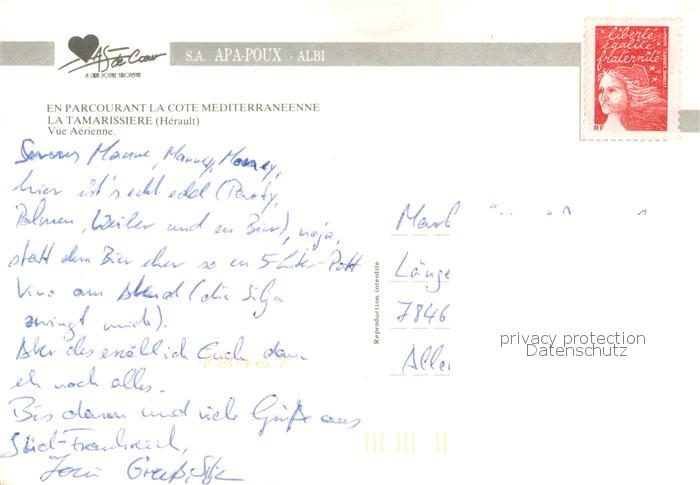 As de Cœur
LA CARTE POSTALE EUROPEENNE
S.A. APA-POUX - ALBI
liberté
égalité
fraternité
RF
EN PARCOURANT LA COTE MEDITERRANEENNE
LA TAMARISSIERE (Hérault)
Vue Aérienne.
Servus Manne, Manney, Money,
hier ist's echt edel (Party,
Palmen, Weiber und en Bier), naja,
statt dem Bier eher so en 5 Liter-Pott
Vino am Abend (die Silja
zwingt mich).
Aber des erzähl ich Euch dann
eh noch alles.
Bis dann und viele Grüße aus
Süd-Frankreich,
Gruß, Silja
Reproduction interdite
Mar
Länge
7846
Alle
privacy protection
Datenschutz
78467